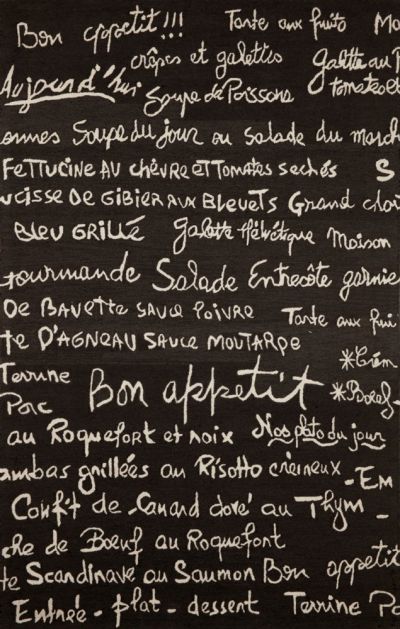 Bon appetit!!! Tarte aux fruits Mo
crêpes et galettes Galette au F
Aujourd'hui Soupe de Poissons tomates et
onnes Soupe du jour ou Salade du march
FETTUCINE AU CHÈVRE ET TOMATES SECHÉS S
UCISSE DE GIBIER AUX BLEUETS Grand choi
BLEU GRILLÉ Galette Hélvétique Maison
gourmande Salade Entrecôte garnie
DE BAVETTE SAUCE POIVRE Tarte aux frui
te D'AGNEAU SAUCE MOUTARPE
*Crém
Terrine Bon appetit *Boeuf-
Porc
au Roquefort et noix Nos plats du jour
ambas grillées au Risotto crémeux -Em
Confit de Canard doré au Thym -
che de Bœuf au Roquefort
te Scandinave au Saumon Bon appetit
Entrée - plat - dessert Terrine Pa